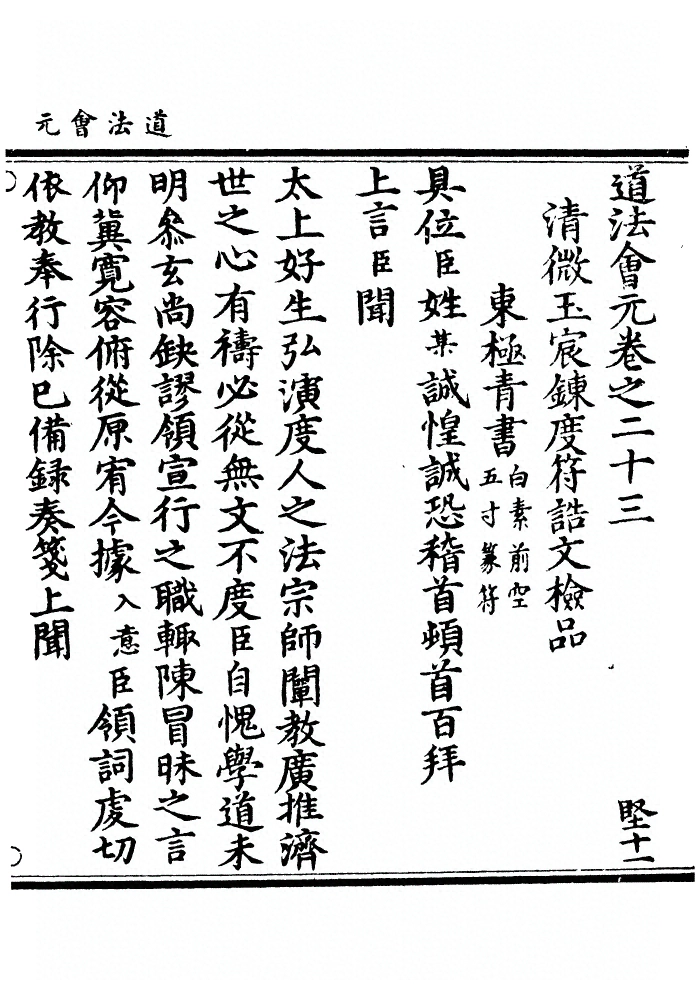 道法會元
道法會元卷之二十三 堅十一
清微玉宸鍊度符誥文檢品
東極青書白素前空五寸篆符
具位臣姓某誠惶誠恐稽首頓首百拜
上言臣聞
太上好生弘演度人之法宗師闡教廣推濟
世之心有禱必從無文不度臣自愧學道未
明叅玄尚缺謬領宣行之職輙陳冒昧之言
仰冀寬容俯從原宥今據入意臣領詞虔切
依教奉行除已備録奏箋上聞